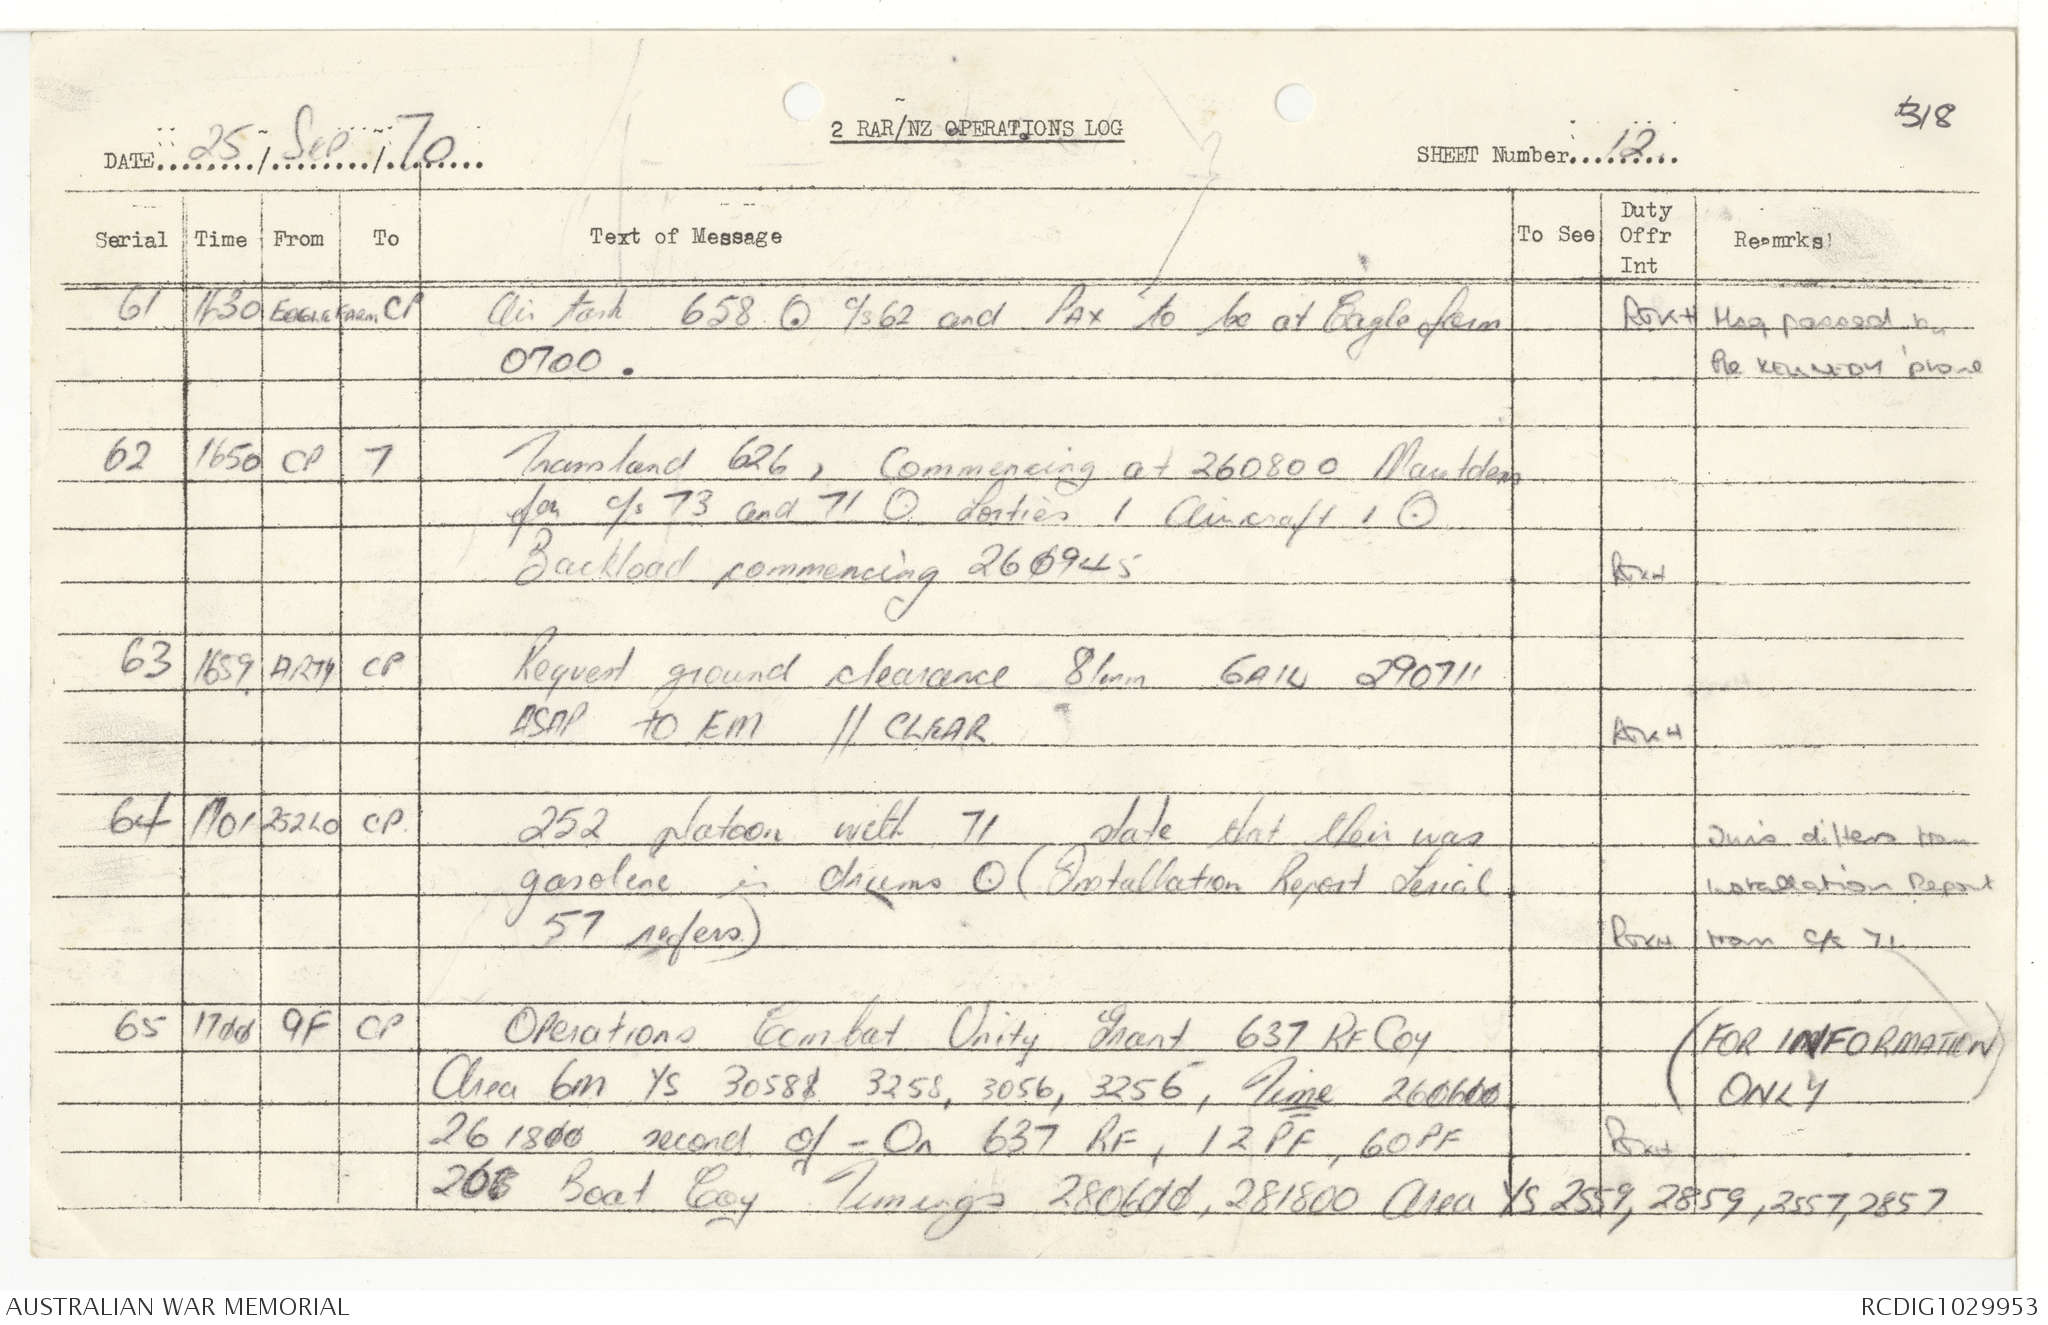 318
DATE 25 / Sep / 70
2 RAR/NZ OPERATIONS LOG
SHEET Number 12
Serial Time From To Text of Message To See Duty Offr Int Remrks
61 1630 EAGLE FARM CP Air task 658 ⊙ c/s 62 and PAX to be at Eagle farm Msg passed by
0700. Pte KENNEDY 'phone
62 1650 CP 7 626, Commencing at 260800
for c/s 73 and 71 ⊙ Sorties 1 Aircraft 1 ⊙
Backload commencing 260945
63 1659 ARTY CP Request ground clearance 81mm 290711
ASAP to EM // CLEAR
64 1701 252LO CP 252 platoon with 71 state that their was This differs from
gasolene in drums ⊙ (Installation Report Serial Installation Report
57 refers.) from c/s 71.
65 1700 9F CP Operations Combat Unity Grant 637 RF Coy (FOR INFORMATION
Area 6m YS 3058 3258, 3056, 3256, Time 260600 ONLY)
261800 second of - On 637 RF, 12 PF, 60 PF
Boat Coy Timings 280600, 281800 Area YS 2559, 2859, 2557, 2857
AUSTRALIAN WAR MEMORIAL RCDIG1029953